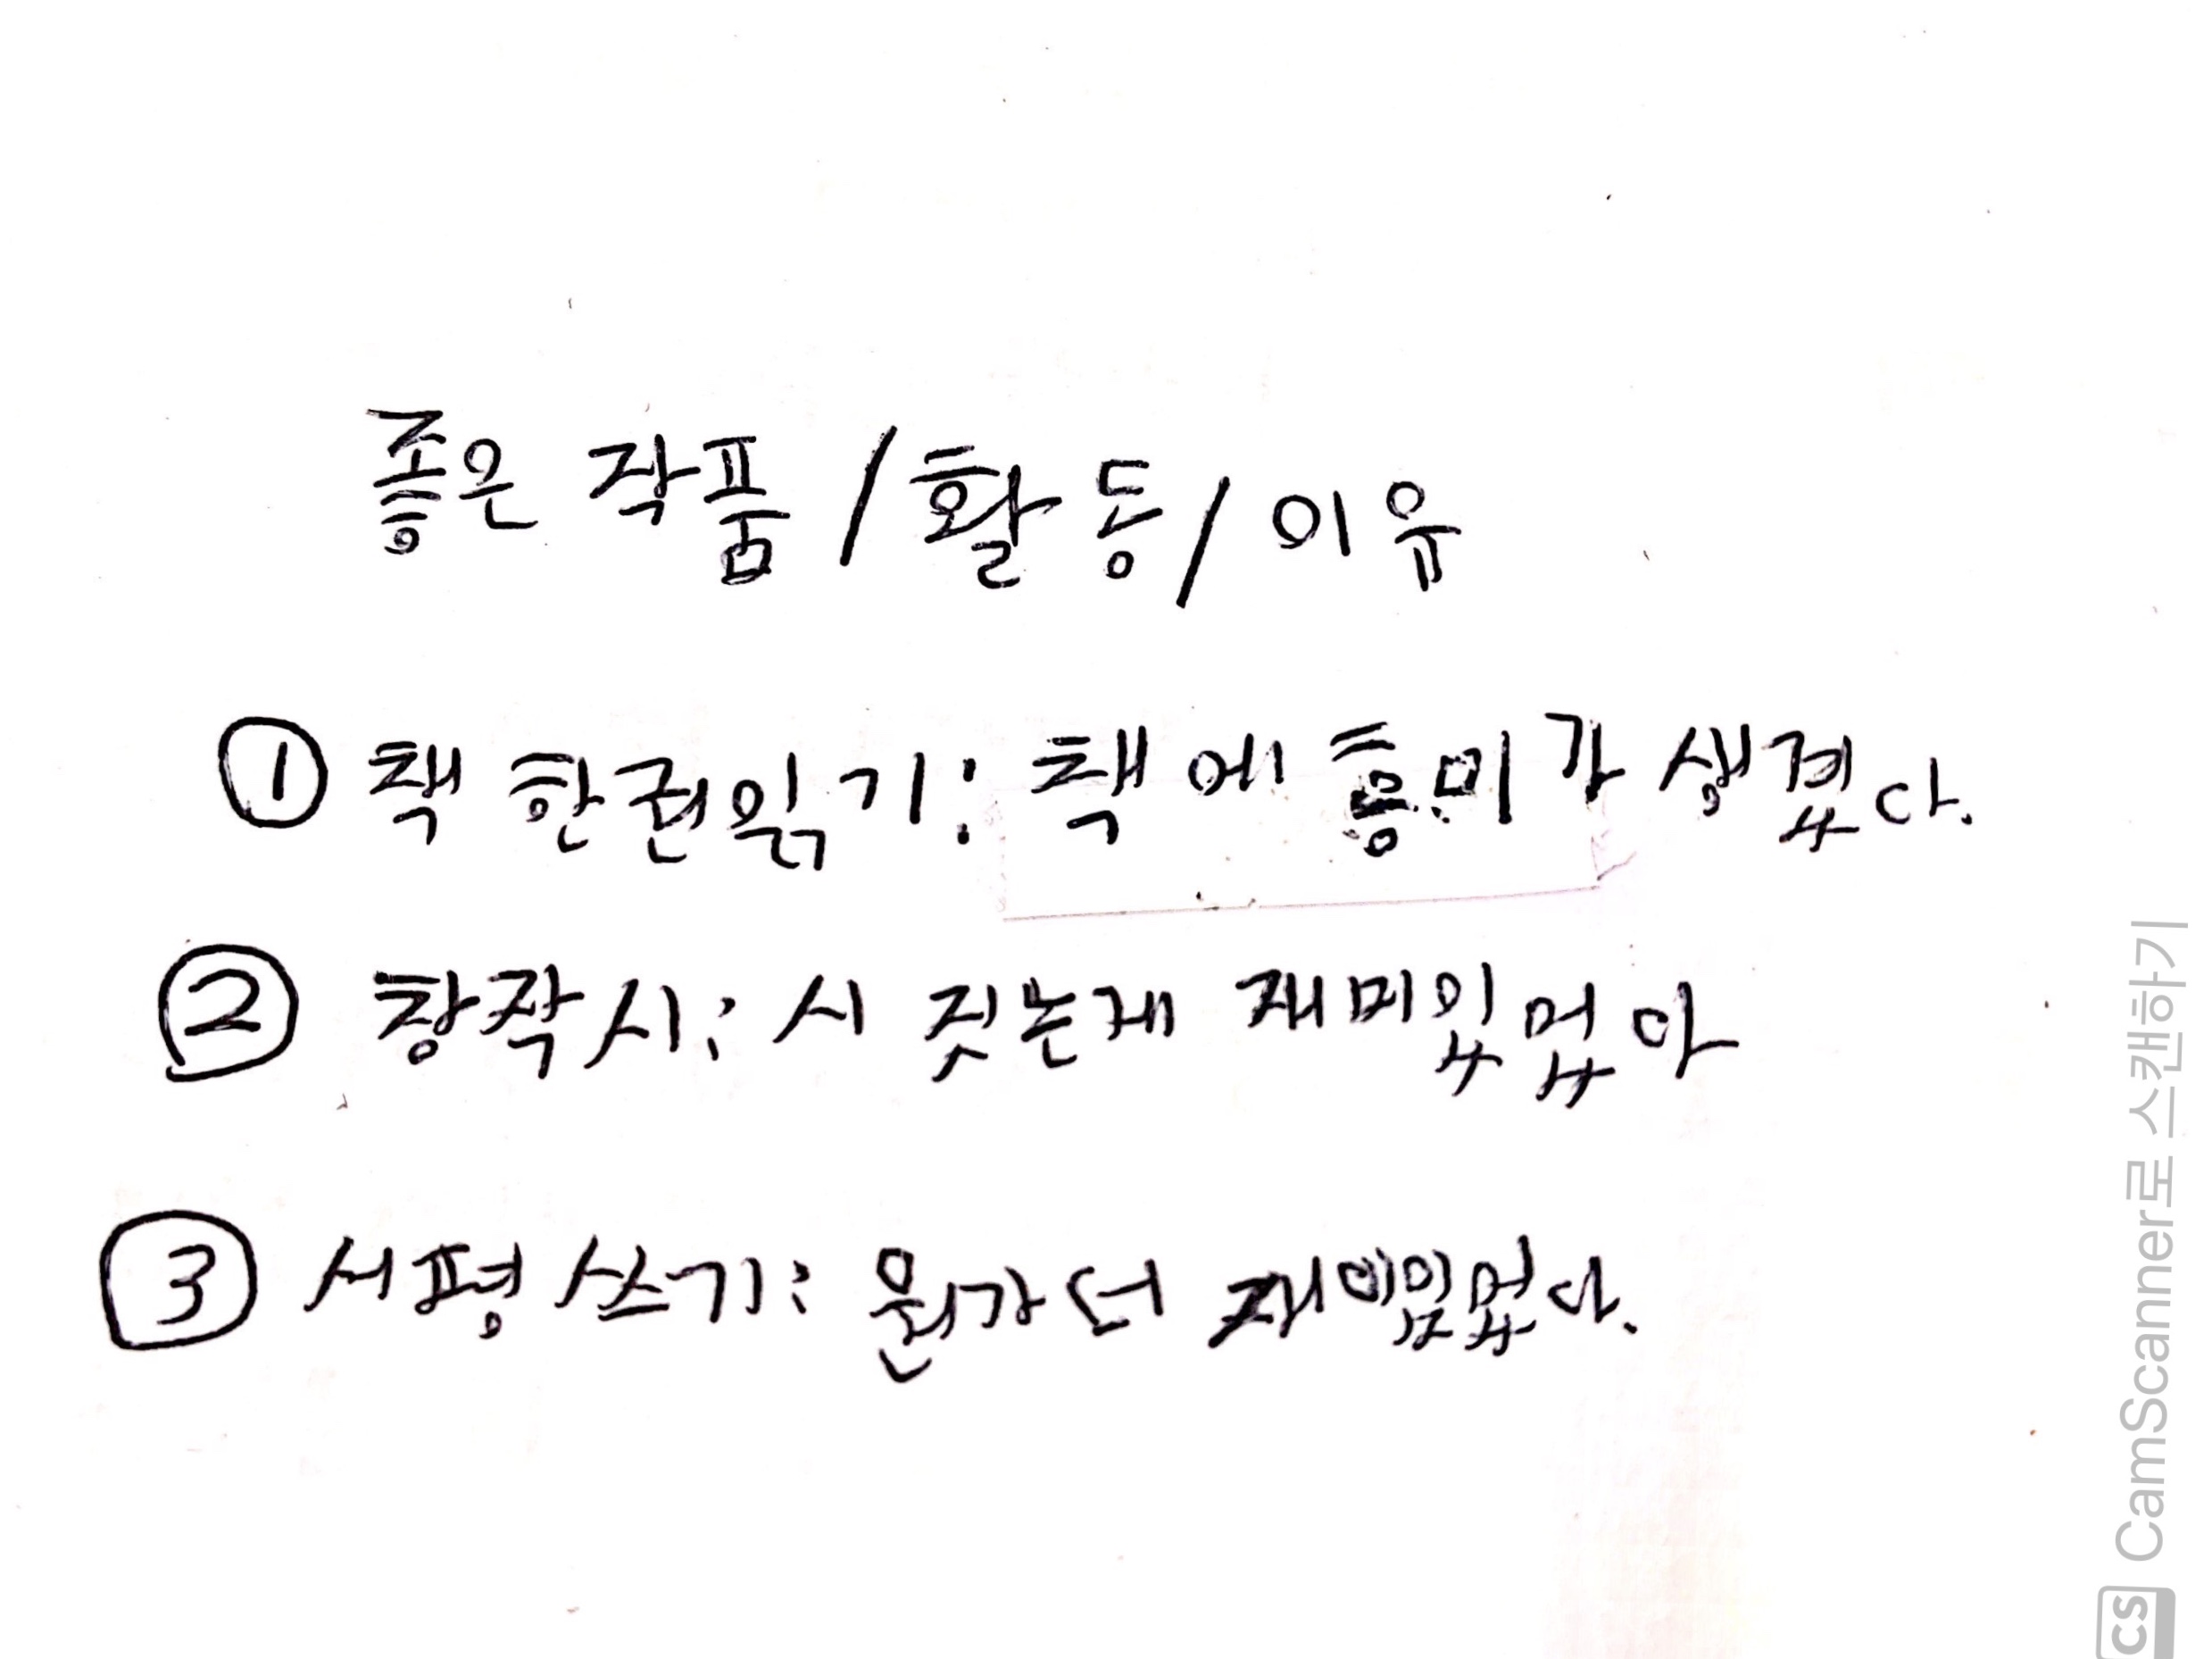 좋은 작품 / 활동 / 이유
① 책 한권읽기: 책에 흥미가 생겼다.
② 창작시: 시 짓는게 재미있었다
③ 서평 쓰기: 뭔가 더 재미있었다.
CS CamScanner로 스캔하기